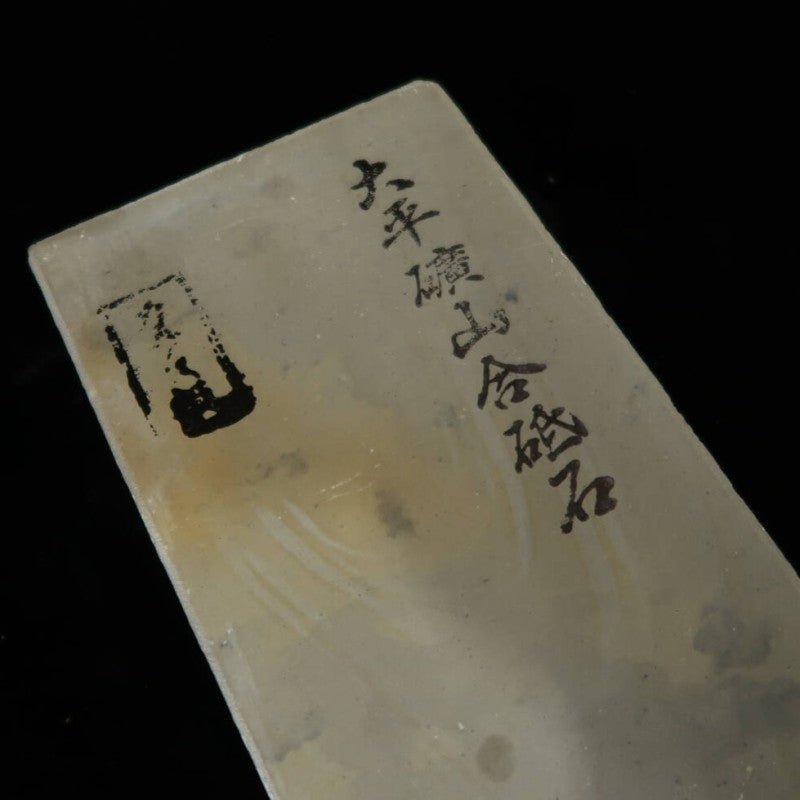 大平礦山合砥石